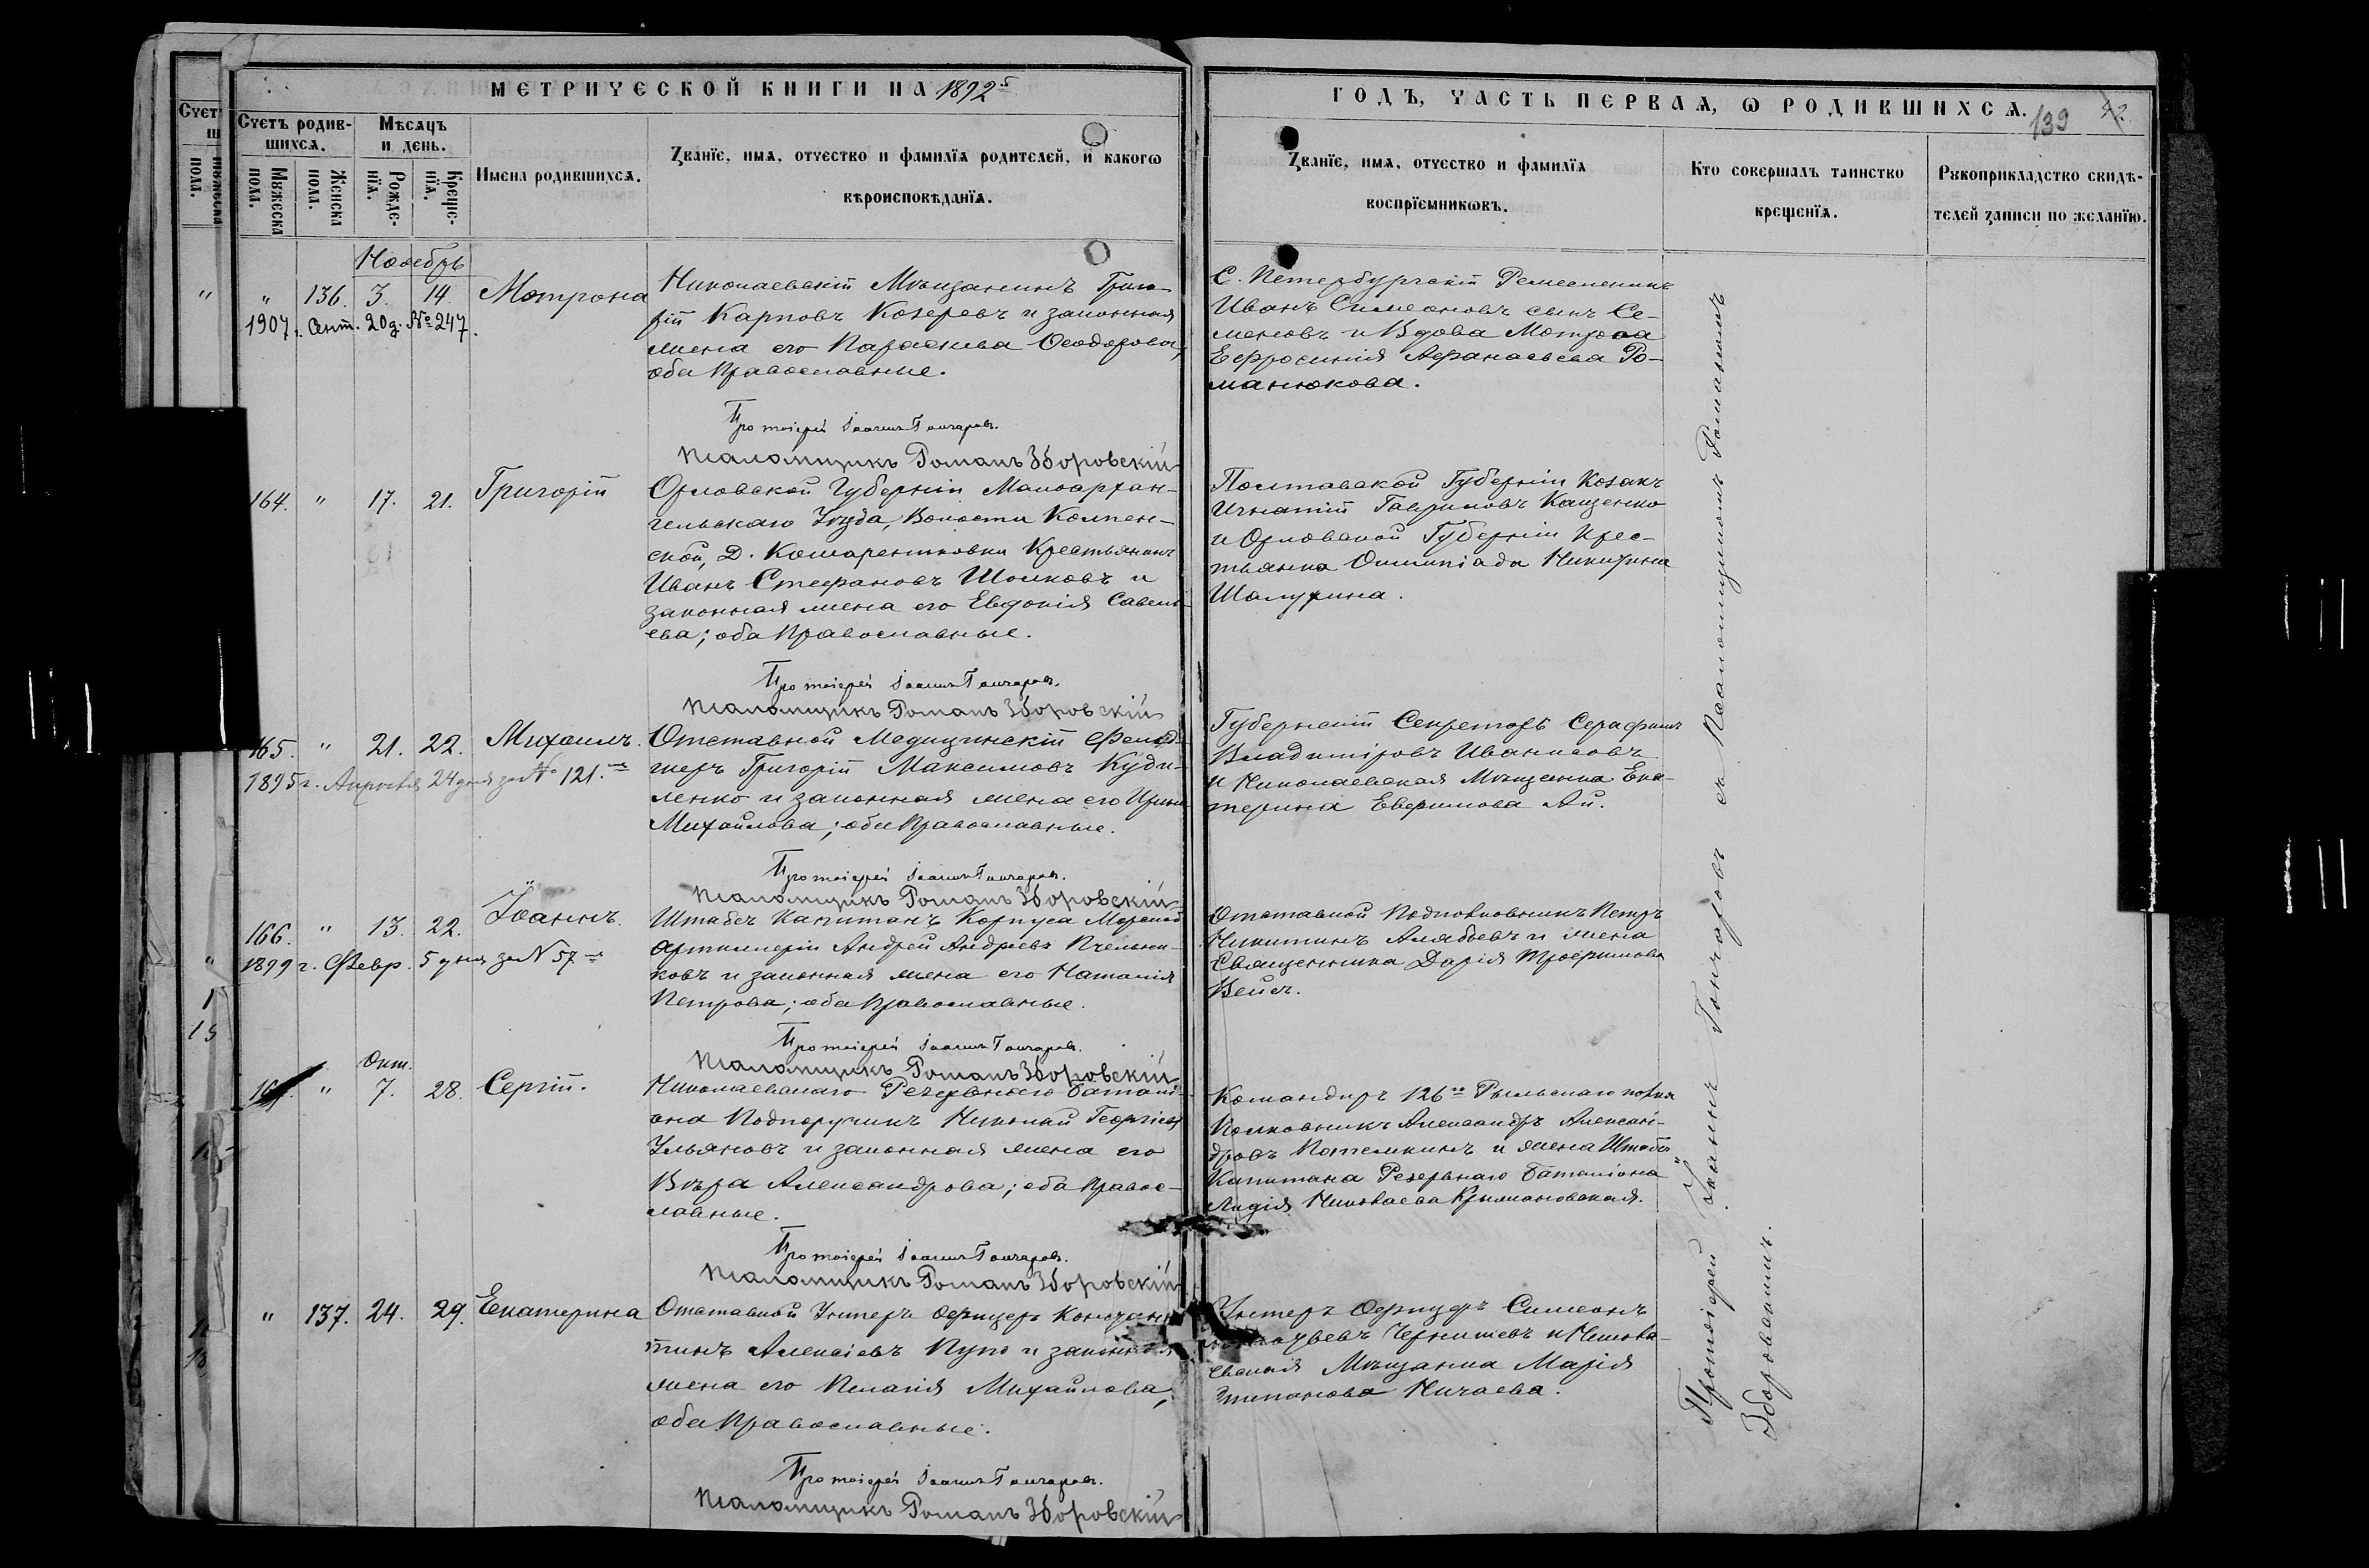 МЕТРИЧЕСКОЙ КНИГИ НА 1892 й
Счетъ родив-
шихся.
Мѣсяцъ
и день.
Мужеска
пола.
Женска
пола.
Рожде-
нія.
Креще-
нія.
Имена родившихся.
Званіе, имя, отчество и фамилія родителей, и какого
вѣроисповѣданія.
Ноябрь
" 136. 3. 14. Мотрона
1907 г. Сент. 20 д. № 247.
Николаевскій Мѣщанинъ Григо-
рій Карповъ Козыревъ и законная
жена его Параскева Ѳеодорова,
оба Православные.
Протоіерей Іоаннъ Гончаровъ.
Псаломщикъ Романъ Зборовскій
164. " 17. 21. Григорій
Орловской Губерніи Малоархан-
гельскаго Уѣзда, Волости
Д. Крестьянинъ
Иванъ Стефановъ и
законная жена его Евдокія Савель-
ева; оба Православные.
Протоіерей Іоаннъ Гончаровъ.
Псаломщикъ Романъ Зборовскій
165. " 21. 22. Михаилъ.
1895 г. Апрѣля 24 дня за № 121.
Отставной Медицинскій Фельд-
шеръ Григорій Максимовъ Куди-
ленко и законная жена его Ирина
Михайлова; оба Православные.
Протоіерей Іоаннъ Гончаровъ.
Псаломщикъ Романъ Зборовскій
166. " 13. 22. Іоаннъ.
1899 г. Февр. 5 дня за № 57
Штабсъ Капитанъ Корпуса Морской
Артиллеріи Андрей Андреевъ Пчельни-
ковъ и законная жена его Наталія
Петрова; оба Православные.
Протоіерей Іоаннъ Гончаровъ.
Псаломщикъ Романъ Зборовскій
Окт.
" 7. 28. Сергій.
Николаевскаго Резервнаго Баталі-
она Подпоручикъ Николай Георгіевъ
Ульяновъ и законная жена его
Вѣра Александрова; оба Правос-
лавные.
Протоіерей Іоаннъ Гончаровъ.
Псаломщикъ Романъ Зборовскій
" 137. 24. 29. Екатерина
Отставной Унтеръ Офицеръ Констан-
тинъ Алексіевъ Пупо и законная
жена его Пелагія Михайлова,
оба Православные.
Протоіерей Іоаннъ Гончаровъ.
Псаломщикъ Романъ Зборовскій
ГОДЪ, ЧАСТЬ ПЕРВАЯ, О РОДИВШИХСЯ.
139
Званіе, имя, отчество и фамилія
воспріемниковъ.
Кто совершалъ таинство
крещенія.
Рукоприкладство свидѣ-
телей записи по желанію.
С. Петербургскій Ремесленникъ
Иванъ Симеоновъ сынъ Се-
меновъ и Вдова
Ефросинія Афанасьева Ро-
манюкова.
Полтавской Губерніи Козакъ
Игнатій Гавриловъ Кащенко
и Орловской Губерніи Крес-
тьянка Олимпіада Никитина
Шалухина.
Губернскій Секретарь Серафимъ
Владиміровъ Иванисовъ
и Николаевская Мѣщанка Ека-
терина Евфимова Ай.
Отставной Подполковникъ Петръ
Никитинъ Алябьевъ и жена
Священника Дарія Трофимова
Вейсъ.
Командиръ 126го Рыльскаго полка
Полковникъ Александръ Алексан-
дровъ Потемкинъ и жена Штабсъ
Капитана Резервнаго Баталіона
Лидія Николаева Крыжановская.
Унтеръ Офицеръ Симеонъ
Чернышевъ и Никола-
евская Мѣщанка Марія
Степанова Ничаева.
Протоіерей Іоаннъ Гончаровъ съ Псаломщикомъ Романомъ
Зборовскимъ.